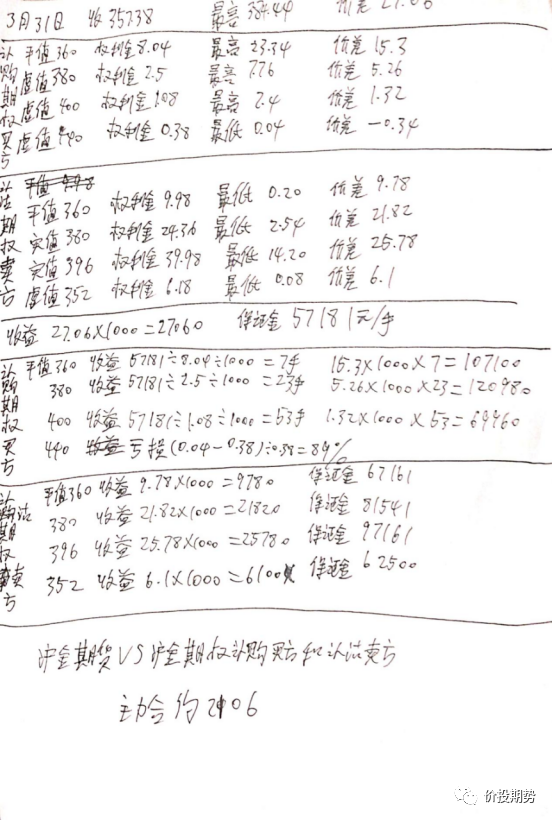 3月31日 收 357.38 最高 384.44 价差 27.06
认购期权买方
平值360 权利金8.04 最高 23.34 价差 15.3
虚值380 权利金2.5 最高 7.76 价差 5.26
虚值400 权利金1.08 最高 2.4 价差 1.32
虚值440 权利金0.38 最低 0.04 价差 -0.34
认沽期权卖方
平值360 权利金 9.98 最低 0.20 价差 9.78
实值380 权利金24.36 最低 2.54 价差 21.82
实值396 权利金39.98 最低 14.20 价差 25.78
虚值352 权利金 6.18 最低 0.08 价差 6.1
收益 27.06×1000=27060 保证金 57181元/手
认购期权买方
平值360 收益 57181÷8.04÷1000=7手 15.3×1000×7=107100
380 收益 57181÷2.5÷1000=23手 5.26×1000×23=120980
400 收益 57181÷1.08÷1000=53手 1.32×1000×53=69960
440 收益 亏损(0.04-0.38)÷0.38=89%
认沽期权卖方
平值360 收益 9.78×1000=9780 保证金 67161
380 收益 21.82×1000=21820 保证金 81541
396 收益 25.78×1000=25780 保证金 97161
352 收益 6.1×1000=6100 保证金 62500
沪金期货VS沪金期权认购买方和认沽卖方
主力合约2106
价投期势